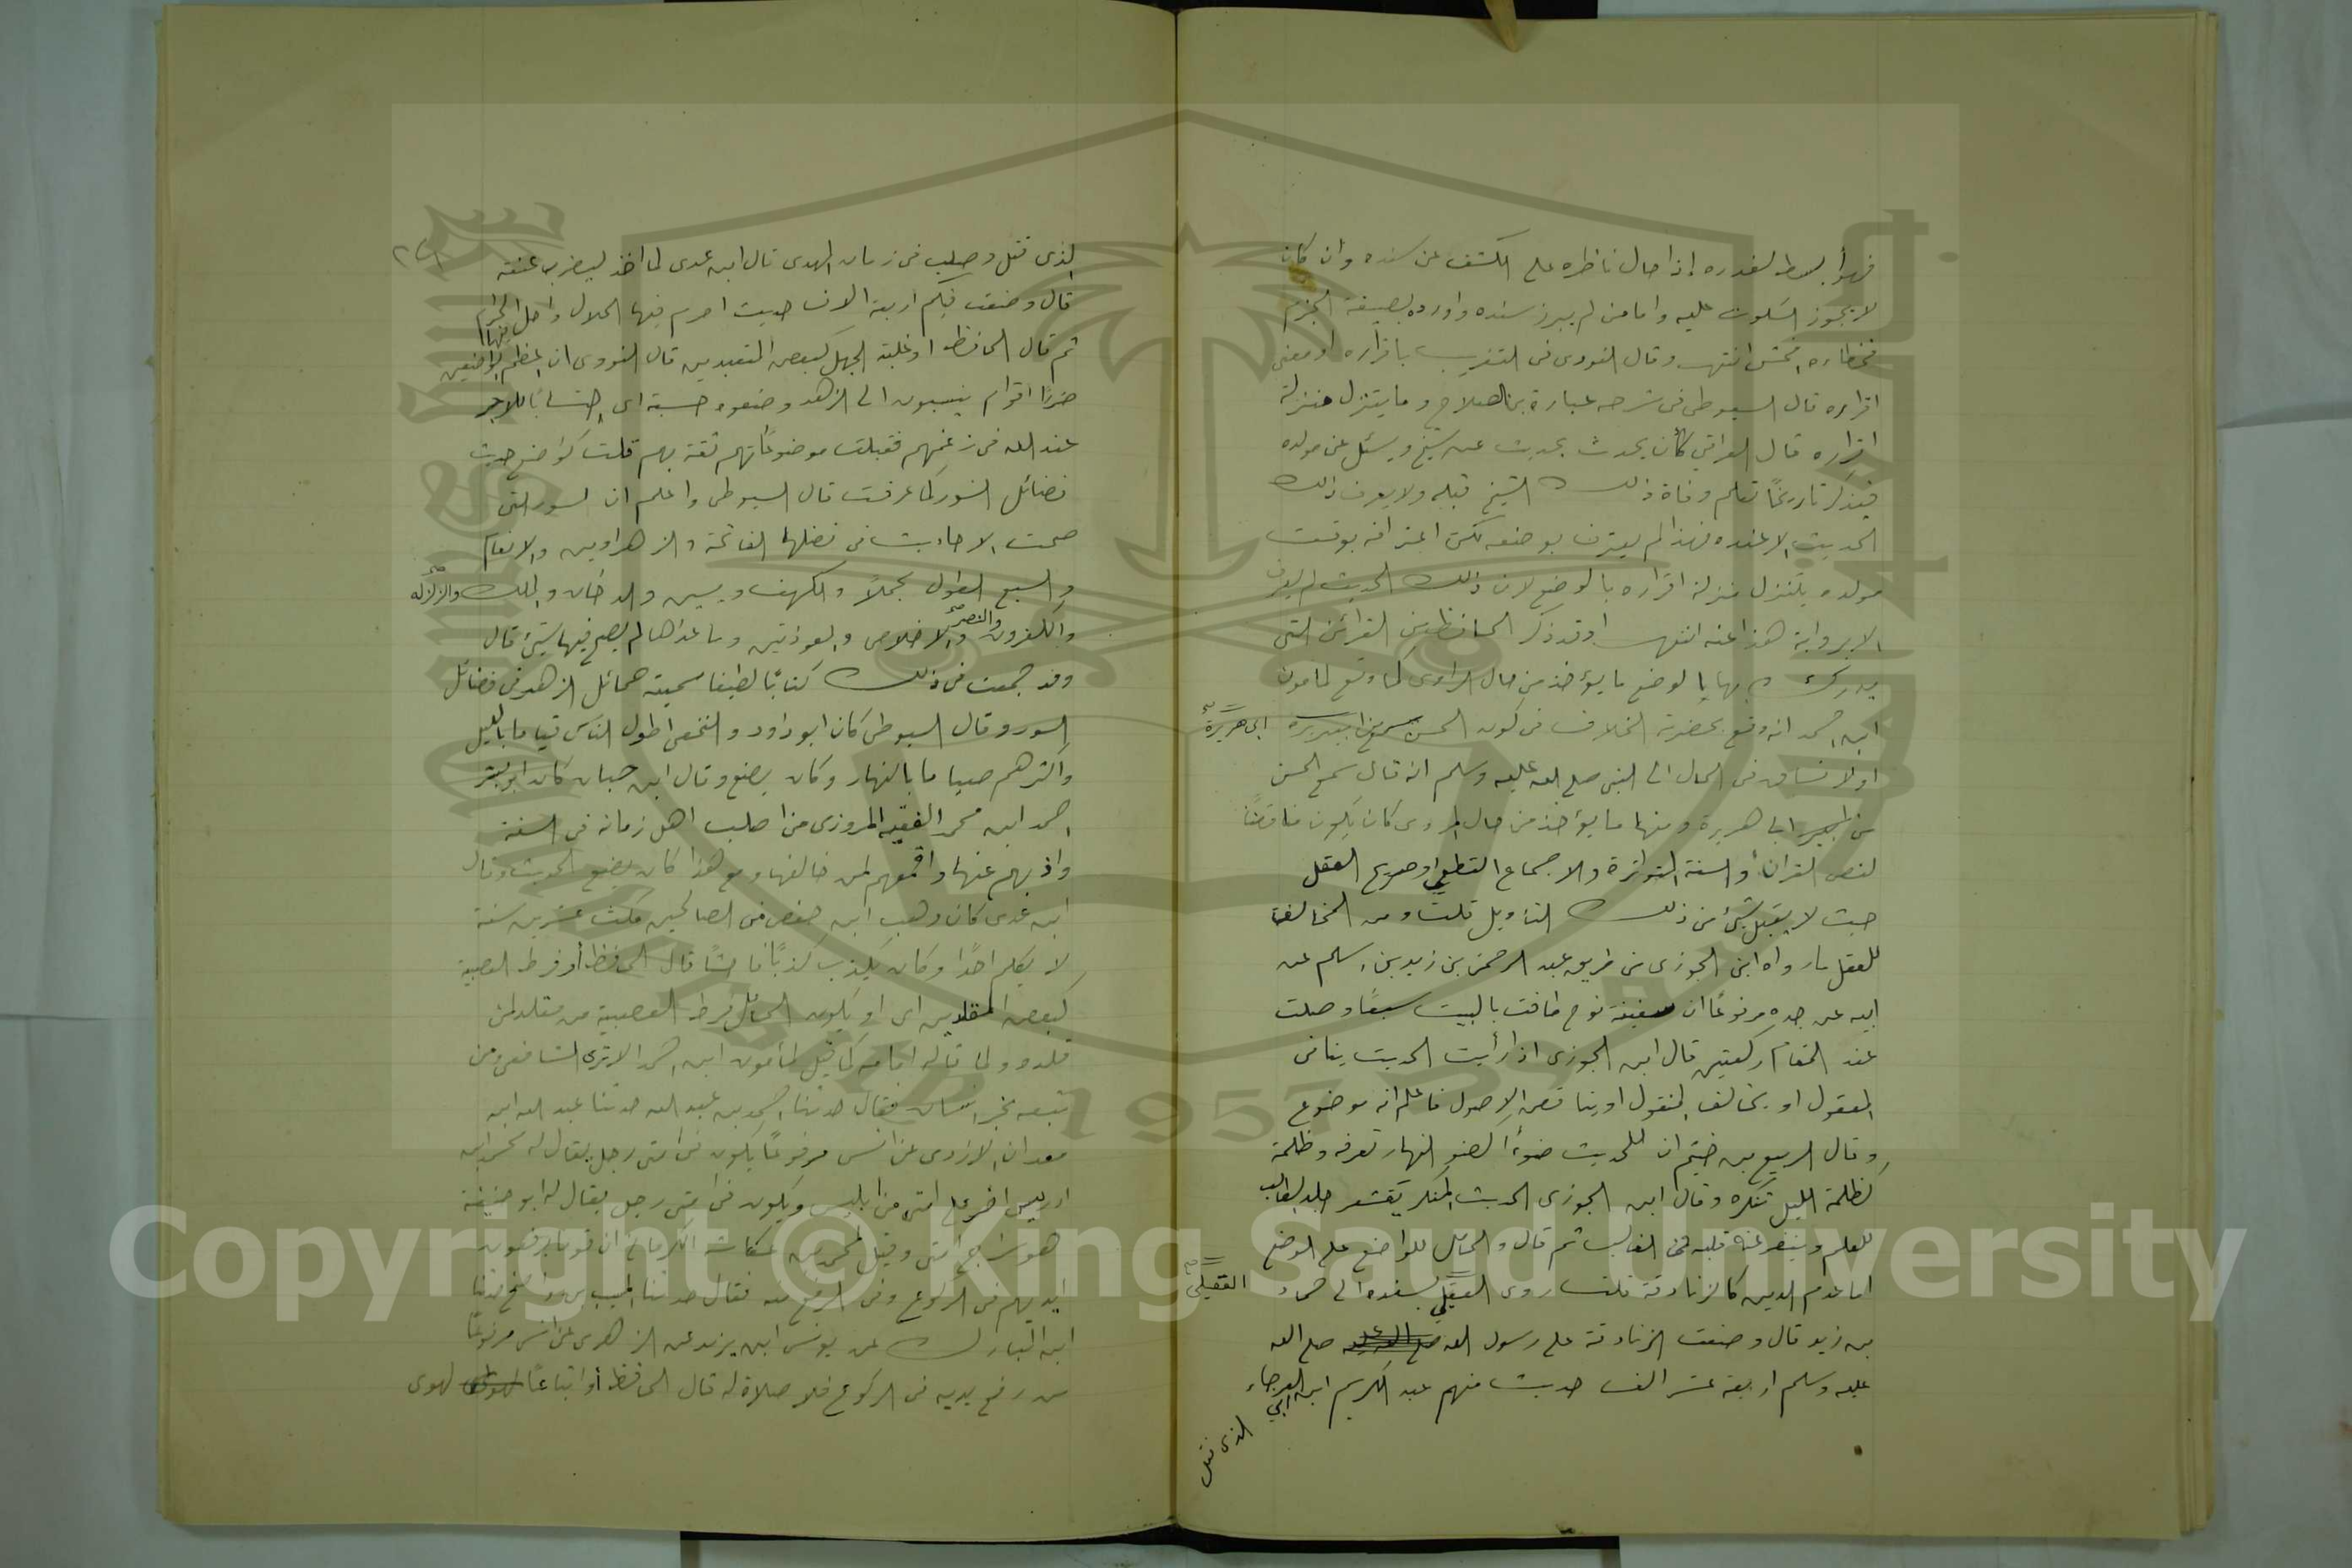 فهو أبسط لعذره إذا حال ناظره على الكشف عن سنده وان كان
لا يجوز السكوت عليه واما من لم يبرز سنده واورده بصيغة الجزم
فخطاءه افحش انتهى وقال النووى فى التقريب باقراره او معنى
اقراره قال السيوطى فى شرحه عبارة بن الصلاح وما يتنزل منزلة
اقراره قال العراقي كأن يحدث بحديث عن شيخ ويسئل عن مولده
فيذكر تاريخًا تعلم وفاة ذلك الشيخ قبله ولا يعرف ذلك
الحديث الا عنده فهذا لم يعترف بوضعه لكن اعترافه بوقت
مولده يتنزل منزلة اقراره بالوضع لان ذلك الحديث لم يعرف
الا برواية هذا عنه انتهى وقد ذكر الحافظ من القرائن التى
يدرك بها بالوضع ما يؤخذ من حال الراوى كما وقع لمأمون
ابن احمد انه وقع بحضرته الخلاف فى كون الحسن سمع من ابى هريرة
اولا فساق فى الحال الى النبى صلى الله عليه وسلم انه قال سمع الحسن
من ابا هريرة ومنها ما يؤخذ من حال المروى كان يكون مناقضًا
لنص القران أو السنة المتواترة والاجماع القطعي او صريح العقل
حيث لا يقبل شئ من ذلك التأويل قلت ومن المخالف
للعقل ما رواه ابن الجوزى من طريق عبد الرحمن بن زيد بن اسلم عن
ابيه عن جده مرفوعًا ان سفينة نوح طافت بالبيت سبعًا وصلت
عند المقام ركعتين قال ابن الجوزى اذا رأيت الحديث ينافى
المعقول او يخالف المنقول او يناقض الاصول فاعلم انه موضوع
وقال الربيع بن خثيم ان للحديث ضوءًا كضوء النهار تعرفه وظلمة
كظلمة الليل تنكره وقال ابن الجوزى الحديث المنكر يقشعر جلد الطالب
للعلم وينفر عنه قلبه فى الغالب ثم قال والحامل للواضع على الوضع
اما عدم الدين كالزنادقة قلت روى العقيلي بسنده الى حماد
العقيلي
بن زيد قال وضعت الزنادقة على رسول الله صلى الله
عليه وسلم اربعة عشر الف حديث منهم عبد الكريم ابن ابي العرجاء
الذى قتل
الذى قتل وصلب فى زمان المهدى قال ابن عدى لما اخذ ليضرب عنقه
قال وضعت فيكم اربعة الاف حديث احرم فيها الحلال واحل فيها الحرام
ثم قال الحافظ او غلبة الجهل كبعض المتعبدين قال النووى ان اعظم الواضعين
ضررًا اقوام ينسبون الى الزهد وضعوه حسبة اى احتسابًا للاجر
عند الله فى زعمهم فقبلت موضوعاتهم ثقة بهم قلت كواضع حديث
فضائل السور كما عرفت قال السيوطى واعلم ان السور التى
صحت الاحاديث فى فضلها الفاتحة والزهراوين والانعام
والسبع الطول مجملًا والكهف ويسين والدخان والملك والزلزله
والكفرون والنصر والاخلاص والمعوذتين وما عداها لم يصح فيها شئ قال
وقد جمعت فى ذلك كتابًا لطيفا سميته حمائل الزهر فى فضائل
السور وقال السيوطى كان ابو داود والنخعى اطول الناس قياما بالليل
واكثرهم صياما بالنهار وكان يضع وقال ابن حبان كان ابو بشر
احمد ابن محمد الفقيه المروزى من اصلب اهل زمانه فى السنة
واذبهم عنها واقمعهم لمن خالفها ومع هذا كان يضع الحديث وقال
ابن عدى كان وهب ابن حفص من الصالحين مكث عشرين سنة
لا يكلم احدًا وكان يكذب كذبًا فاحشًا قال الحافظ أو فرط العصبية
كبعض المقلدين اى او يكون الحامل فرط العصبية من مقلد لمن
قلده ولما قاله امامه كما قيل لمأمون ابن احمد الا ترى الشافعى ومن
تبعه بخراسان فقال حدثنا احمد بن عبد الله حدثنا عبد الله ابن
معدان الازدى عن انس مرفوعًا يكون فى امتى رجل يقال له محمد ابن
ادريس اضر على امتى من ابليس ويكون فى امتى رجل يقال له ابو حنيفة
هو سراج امتى وقيل لمحمد بن عكاشة الكرمانى ان قوما يرفعون
ايديهم فى الركوع وفى الرفع منه فقال حدثنا المسيب بن واضح حدثنا
ابن المبارك عن يونس ابن يزيد عن الزهرى عن انس مرفوعًا
من رفع يديه فى الركوع فلا صلاة له قال الحافظ أو اتباعًا لهوى